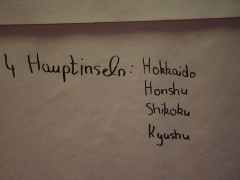 4 Hauptinseln: Hokkaido
Honshu
Shikoku
Kyushu